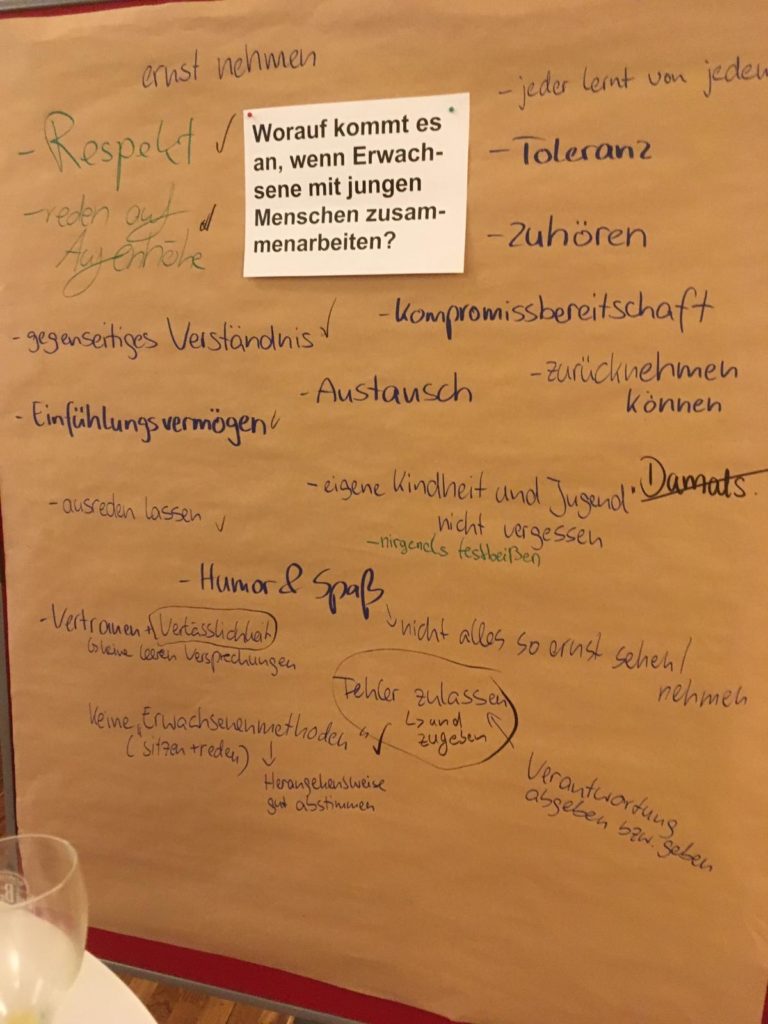 ernst nehmen
- jeder lernt von jedem
- Respekt ✓
Worauf kommt es
an, wenn Erwach-
sene mit jungen
Menschen zusam-
menarbeiten?
- Toleranz
- reden auf
Augenhöhe
- Zuhören
- Kompromissbereitschaft
- gegenseitiges Verständnis ✓
- Austausch
- zurücknehmen
können
- Einfühlungsvermögen ✓
- eigene Kindheit und Jugend
nicht vergessen
Damals
- ausreden lassen ✓
- nirgends festbeißen
- Humor & Spaß
↳ nicht alles so ernst sehen/
nehmen
- Vertrauen + Verlässlichkeit
↳ keine leeren Versprechungen
Fehler zulassen
↳ und
zugeben
Keine „Erwachsenenmethoden" ✓
(sitzen + reden)
↓
Herangehensweise
gut abstimmen
Verantwortung
abgeben bzw. geben